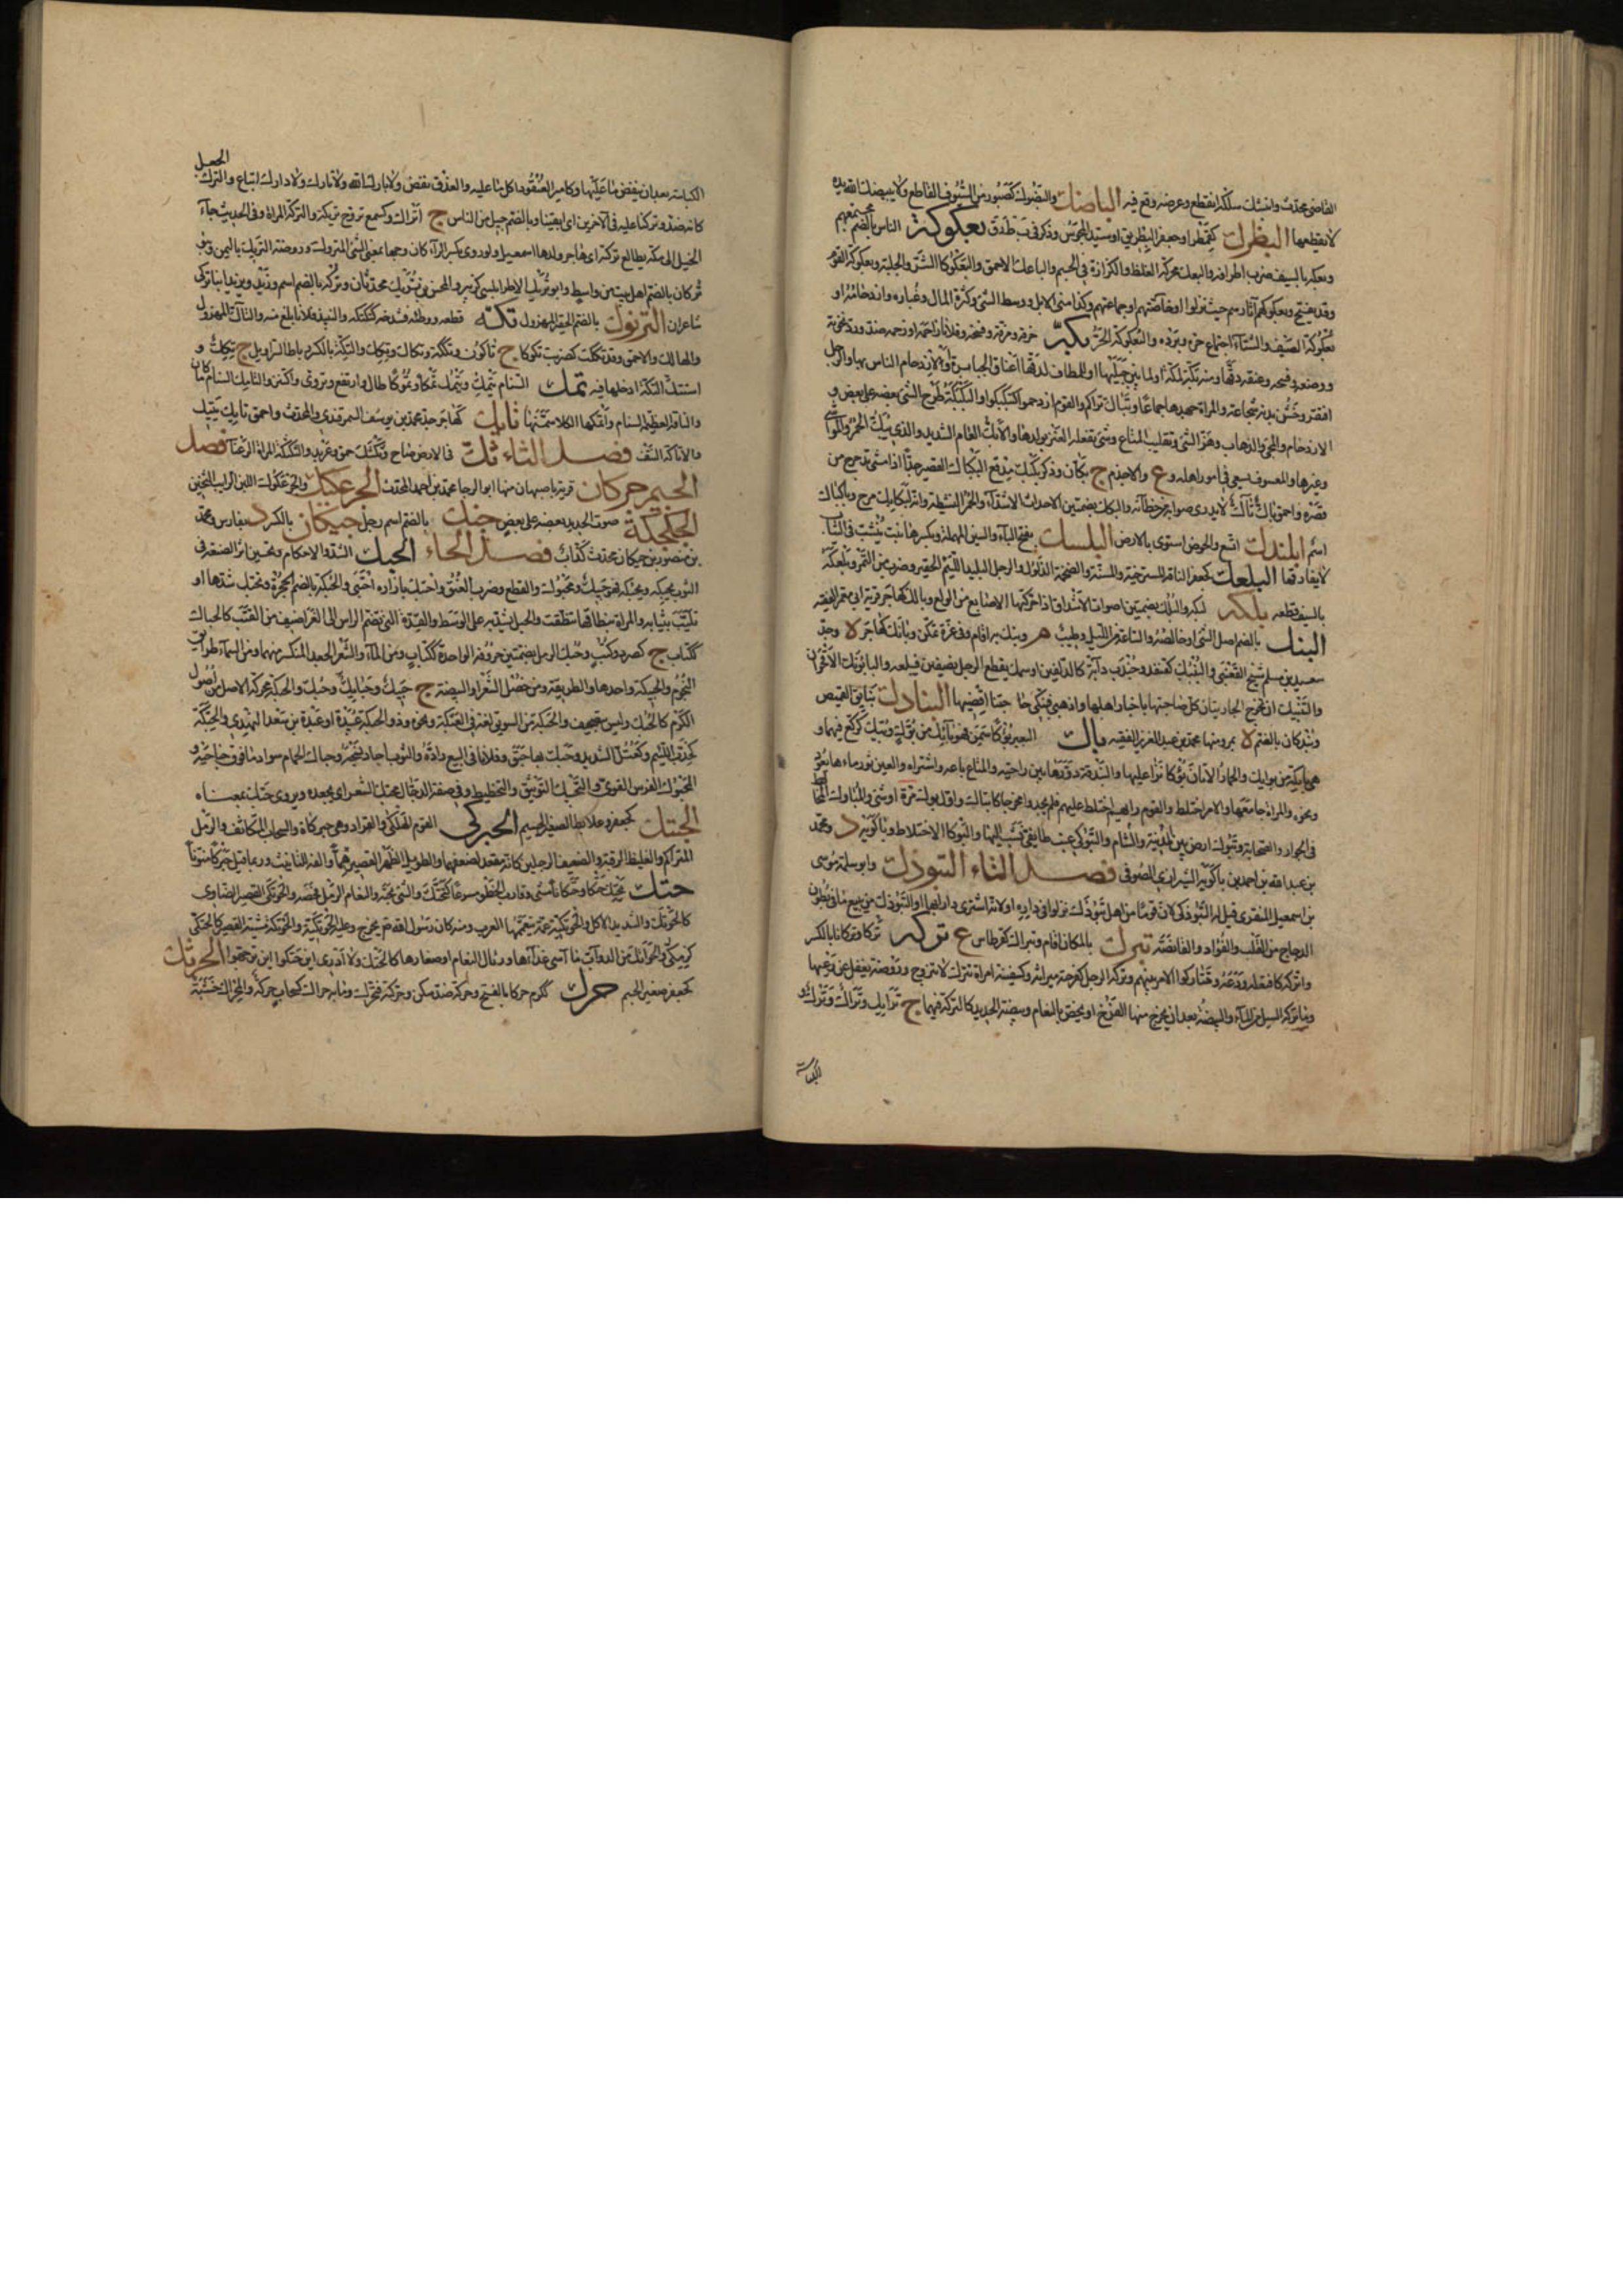 القاضي محدث وانبتك سلكه انقطع وعرضه وقع فيه الباضك والبضوك كصبور من السيوف القاطع ولا يبضك الله يده
لا يقطعها البطرك كقمطر وجعفر البطريق او سيد المجوس وذكر في ب ط ر ق بعكوكة الناس بالضم مجتمعهم
وبعكه بالسيف ضرب اطرافه والبعك محركة الغلظ والكزازة في الجسم والباعك الاحمق والبعكوكاء الشر والجلبة وبعكوكة القوم
وقد يفتح وبعكوكهم آثارهم حيث نزلوا او خاصتهم او جماعتهم وكذا من الابل ووسط الشي وكثرة المال وغباره وازدحامه او
بعكوكة الصيف والشتاء اجتماع حره وبرده والبعكوكة الحر بكه خرقه ومزقه وفسخه وفلانا زاحمه او زحمه ضد ورد نخوته
ووضعه وفسخه وعنقه دقها ومنه بكة لمكة او لما بين جبليها او للمطاف لدقها اعناق الجبابرة او لازدحام الناس بها والرجل
افتقر وخشن بدنه شجاعة والمراة جهدها جماعا وتباك تراكم والقوم ازدحموا كتبكبكوا والبكبكة طرح الشي بعضه على بعض و
الازدحام والمجي والذهاب وهز الشي وتقليب المتاع وشي تفعله العنز بولدها والابك العام الشديد والذي يبك الحمر والمواشي
وغيرها والعسيف يسعى في امور اهله وع والاجذم ج بكان وذكر بكبك مدفع البكباك القصير جدا اذا مشى تدحرج من
قصره واحمق باك تاك لا يدري صوابه من خطائه والبكك بضمتين الاحداث الاشداء والحمر النشيطة وانه لبكابك مرح وباكباك
اسم ابلندك اتسع والحوض استوى بالارض البلسك بفتح الباء والسين المهملة وبكسرها نبت ينشب في الثياب
لا يفارقها البلعك كجعفر الناقة المسترخية والمسنة والضخمة الذلول والرجل البليد اللئيم الحقير وضرب من التمر وبلعكه
بالسيف قطعه بلكه لبكه والبلك بضمتين اصوات الاشداق اذا حركتها الاصابع من الولع
البنك بالضم اصل الشي او خالصه والساعة من الليل وطيب م وبنك به اقام وفي عزه تمكن وبانك كهاجر ة وجد
سعيد بن مسلم شيخ القعنبي والبنبك كقنفذ وجندب دابة كالدلفين او سمك يقطع الرجل نصفين فيبلعه والبابونك الاقحوان
والتبنيك ان تخرج الجاريتان كل من حيها فتخبر كل صاحبتها باخبار اهلها واذهبي فبنكي حاجتنا اقضيها البنادك بنايق القميص
وبندكان بالضم ة بمرو منها محمد بن عبد العزيز الفقيه باك البعير بؤوكا سمن فهو بايك من بوك وبيك كركع فيهما و
هي بايكة من بوايك والحمار الاتان بوكا نزا عليها والبندقة دورها بين راحتيه والمتاع باعه واشتراه والعين ثور ماءها بعود
ونحوه والمراة جامعها والامر اختلط والقوم رايهم اختلط عليهم فلم يجدوا مخرجا كانباك واول بوك مرة او شي والمباوك المخالط
في الجوار والصحابة وتبوك ارض بين المدينة والشام والتبوكي عنب طايفي نسب اليها والبوكاء الاختلاط وباكويه د ومحمد
بن عبد الله بن احمد بن باكويه الشيرازي الصوفي فصل التاء التبوذك وابو سلمة موسى
بن اسمعيل المنقري قيل له التبوذكي لان قوما من اهل تبوذك نزلوا في داره او لانه اشترى دارا بها او التبوذك من يبيع ما في بطون
الدجاج من القلب والفؤاد والقانصة تبرك بالمكان اقام وتبراك كقرطاس ع تركه تركا وتركانا بالكسر
واتركه كافتعله ودعه وتتاركوا الامر بينهم وتركة الرجل كفرحة ميراثه وكسفينة امراة تترك لا تتزوج وروضة يغفل عن رعيها
وما تركه السيل من الماء والبيضة بعد ان يخرج منها الفرخ او يخص بالنعام وبيضة الحديد كالتركة فيهما ج ترايك وتراك وترك و
الكباسة
الكباسة بعد ان ينفض ما عليها وكامير العنقود اكل ما عليه والعذق نقض ولا بارك الله ولا تارك ولا دارك اتباع والترك الجعل
كانه ضد وتركنا عليه في الآخرين اي ابقينا وبالضم جيل من الناس ج اتراك وكسمع تزوج تريكة والتركة المراة وفي الحديث جاء
الخليل الى مكة يطالع تركته اي هاجر وولدها اسمعيل ولو روي بكسر الراء كان وجها بمعنى الشي المتروك وروضة التريك باليمن وبنو
تركان بالضم اهل بيت من واسط وابو تريك الاطرابلسي كزبير والحسن بن تريك محدثان وتركة بالضم اسم وزيد ويزيد ابنا تركي
شاعران الترنوك بالضم الحقير المهزول تكه قطعه ووطئه فشدخه كتكتكه والنبيذ فلانا بلغ منه والتاك المهزول
والهالك والاحمق وقد تككت كضربت تكوكا ج تاكون وتككة وتكاك وتكك والتكة بالكسر رباط السراويل ج تكك و
استتك التكة ادخلها فيه تمك السنام يتمك ويتمك تمكا وتموكا طال وارتفع وتروى واكتنز والتامك السنام ما كان
والناقة العظيمة السنام واتمكها الكلا سمنها تايك كهاجر جد محمد بن يوسف السمرقندي المحدث واحمق تايك
والاتاكة النتف فصل الثاء ثك في الارض ساح وثكثك حمق وعربد والثكثكة المراة الرعناء فصل
الجيم جركان قرية باصبهان منها ابو الرجا محمد بن احمد المحدث الجرعكيك والجرعكوك اللبن الرايب الثخين
الجكجكة صوت الحديد بعضه على بعض جنك بالضم اسم رجل جيكان بالكسر د بفارس ومحمد
بن منصور بن جيكان محدث كذاب فصل الحاء الحبك الشد والاحكام وتحسين اثر الصنعة في
الثوب يحبكه ويحبكه فهو حبيك ومحبوك والقطع وضرب العنق واحتبك بازاره احتبى والحبكة بالضم الحجزة وتحبك شدها او
تلبب بثيابه والمراة بنطاقها تنطقت والحبل يشد به على الوسط والقدة التي تضم الراس الى الغراضيف من القتب كالحباك
ككتاب ج كصرد وكتب وحبك الرمل بضمتين حروفه الواحدة ككتاب ومن الماء والشعر الجعد المنكسر منهما ومن السماء طرايق
النجوم والحبيكة واحدها والطريقة من خصل الشعر او البيضة ج حبيك وحبايك وحبك والحبكة محركة الاصل من اصول
الكرم كالحبك وليس بتصحيف والحبكة من السويق لغة في العبكة ومحمود ذو الحبكة عبيدة او عبدة بن سعد النهدي والحبكة
كخدب اللئيم وكعتل الشديد وحبك بها حبق وفلانا في البيع راده والثوب اجاد نسجه وحباك الحمام سواد ما فوق جناحيه و
المحبوك الفرس القوي والتحبيك التوثيق والتخطيط وفي صفة الدجال محبك الشعر اي مجعده ويروى حبك بمعناه
الحبتك كجعفر وعلابط الصغير الجسيم الحبركى القوم الهلكى والقراد وهي حبركاة والسحاب المتكاثف والرمل
المتراكم والغليظ الرقبة والضعيف الرجلين كانه مقعد لضعفهما والطويل الظهر القصيرهما والفه للتانيث وربما قيل حبركا منونا
حتك يحتك حتكا وحتكانا مشى وقارب الخطو مسرعا كتحتك والشي بحثه والنعام الرمل فحصه والحوتكى القصير الضاوي
كالحوتك والشديد الاكل والحوتكية عمة يتعممها العرب ومنه كان رسول الله صلعم يخرج وعليه الحوتكية والحوتكة مشية القصير كالحتكى
كزمكى والحواتك من الدواب ما اسي غذاءها ورئال النعام او صغارها كالحتك ولا ادري اين حتكوا اين توجهوا الحرتك
كجعفر صغير الجسم حرك ككرم حركا بالفتح وحركة ضد سكن وحركته فتحرك وما به حراك كسحاب حركة والمحراك خشبة